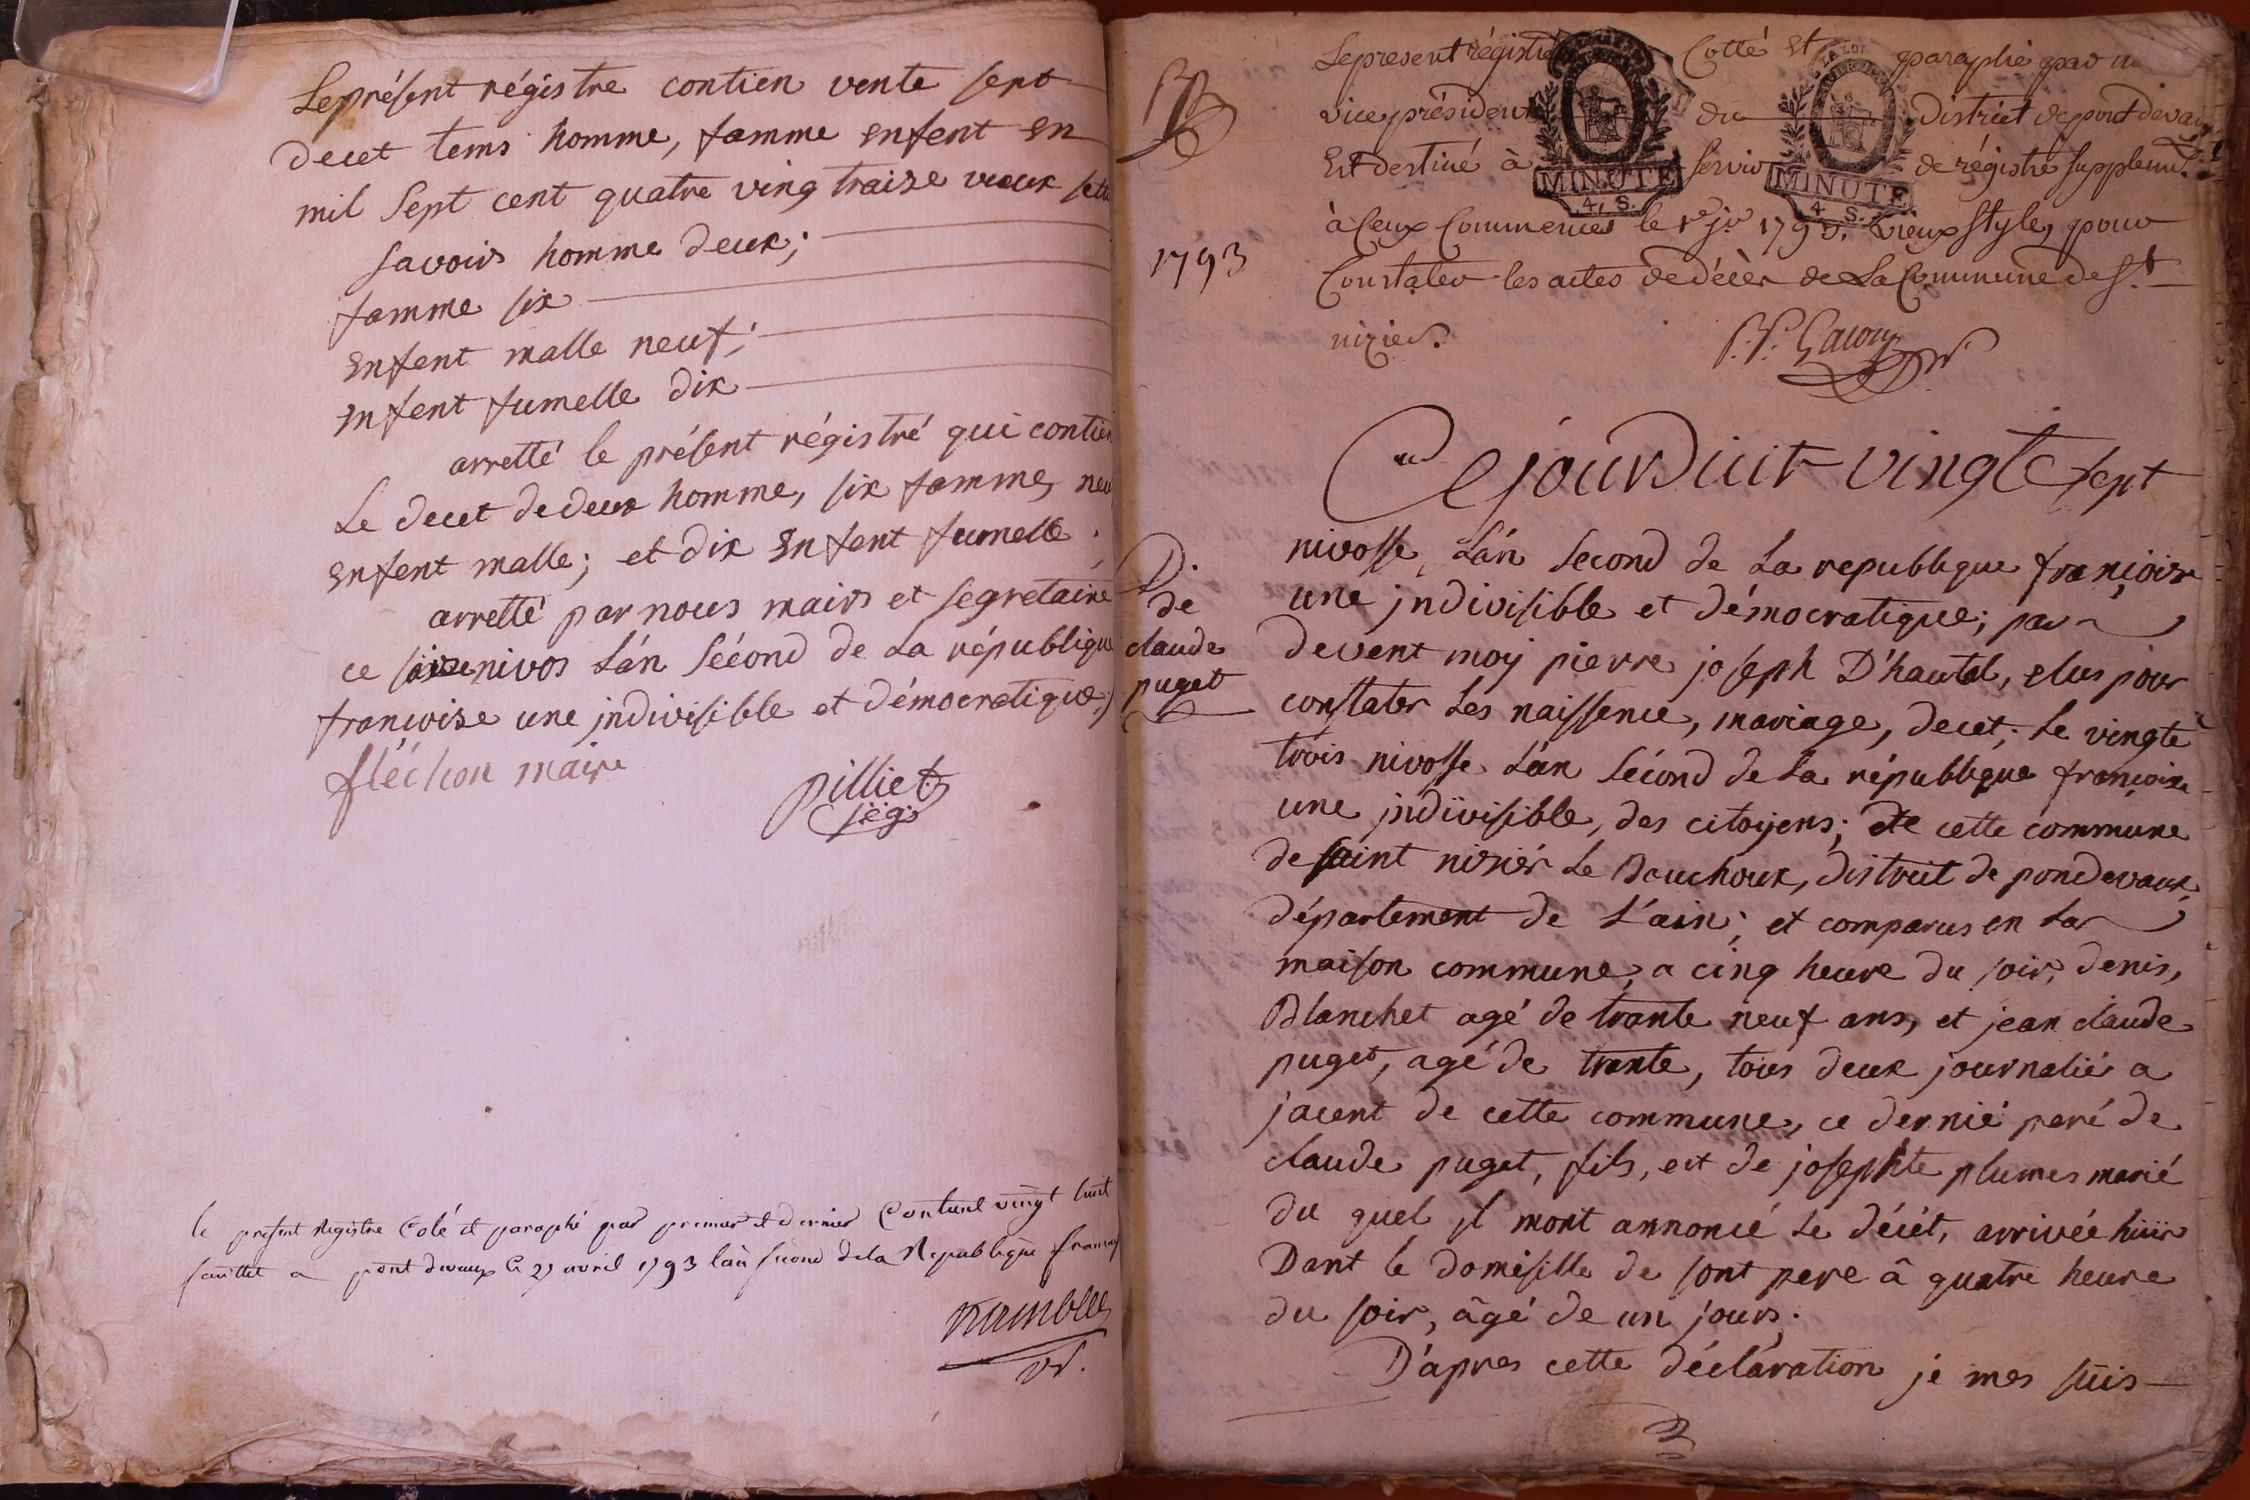 Le présent régistre contien vente sept
decet tems homme, famme enfent en
mil sept cent quatre ving traize vieux
savoirs homme deux;
famme six
enfent malle neuf;
enfent fumelle dix
arretté le présent régistré qui contien
Le decet de deux homme, six famme, neuf
enfent malle; et dix enfent fumelle.
arretté par nous mairs et segretaire
ce nivos L'án sécond de La république
françoise une jndivisible et démocratique;
fléchon maire
pilliet
ség:
le present Registre Coté et paraphé par premier et dernier Contient vingt huit
feuillet a pont devaux le 27 avril 1793 l'an second de la Republique francoise
vp.
Le present régistre Cotté Et paraphé par
vice président du District de pont devaux
Est destiné à servir de régistre supplem.t
à Ceux Commencés le 1.er j.er 1793. vieux style, pour
Constater les actes de décès de La Commune de S.t
nizier.
MINUTE
4. S.
LA LOI
MINUTE
4. S.
1793
Ce jourduit vingte sept
nivosse, L'án second de La republique françoise
une jndivisible et démocratique; par
devent moy pierre joseph D'hautel, elus pour
constater Les naissence, mariage, decet; Le vingte
trois nivosse L'án sécond de La république françoise
une jndivisible, des citoyens; de cette commune
de saint niziér Le Bouchoux, distruit de pondevaux,
département de L'ain; et comparus en La
maison commune, a cinq heure du soir, denis,
Blanchet agé de trante neuf ans, et jean claude
puget, agé de trante, tous deux journalié a
jacent de cette commune, ce dernié peré de
claude puget, fils, eit de josephte plumes marié
du quel jl mont annoncé Le décét, arrivée hiüir
Dant le domisille de sont pere â quatre heure
du soir, âgé de un jours;
D'apres cette déclaration je mes suis
D.
de
claude
puget